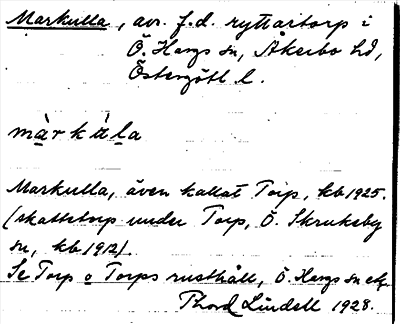 Markulla, avs. f.d. ryttartorp i
Ö. Hargs sn, Åkerbo hd,
Östergötl. l.
màrkúla
Markulla, även kallat Torp, kb 1925.
(skattetorp under Torp, Ö. Skrukeby
sn, kb 1912).
Se Torp o Torps rusthåll, Ö. Hargs sn etc.
Thord Lindell 1928.